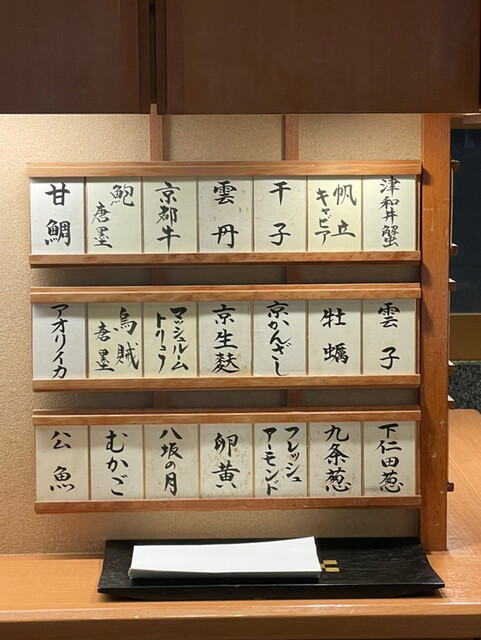 津和井蟹
帆立
キャビア
干子
雲丹
京都牛
鮑
唐墨
甘鯛
雲子
牡蠣
京かんざし
京生麩
マッシュルーム
トリュフ
烏賊
唐墨
アオリイカ
下仁田葱
九条葱
フレッシュ
アーモンド
卵黄
八坂の月
むかご
公魚